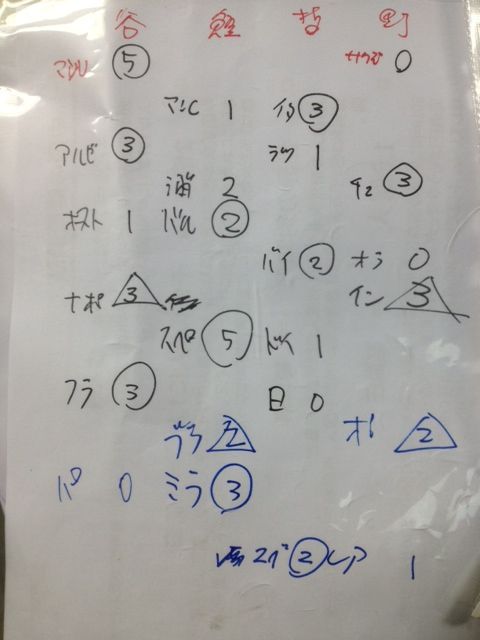 谷 鰹 哲 町
5 0
マンC 1 イタ 3
アルビ 3 ラツ 1
浦 2 チェ 3
オースト 1 バル 2
バイ 2 オラ 0
ナポ 3 イン 3
スペ 5 ドイ 1
フラ 3 日 0
ブラ 2 オi 2
パ 0 ミラ 3
2 レア 1